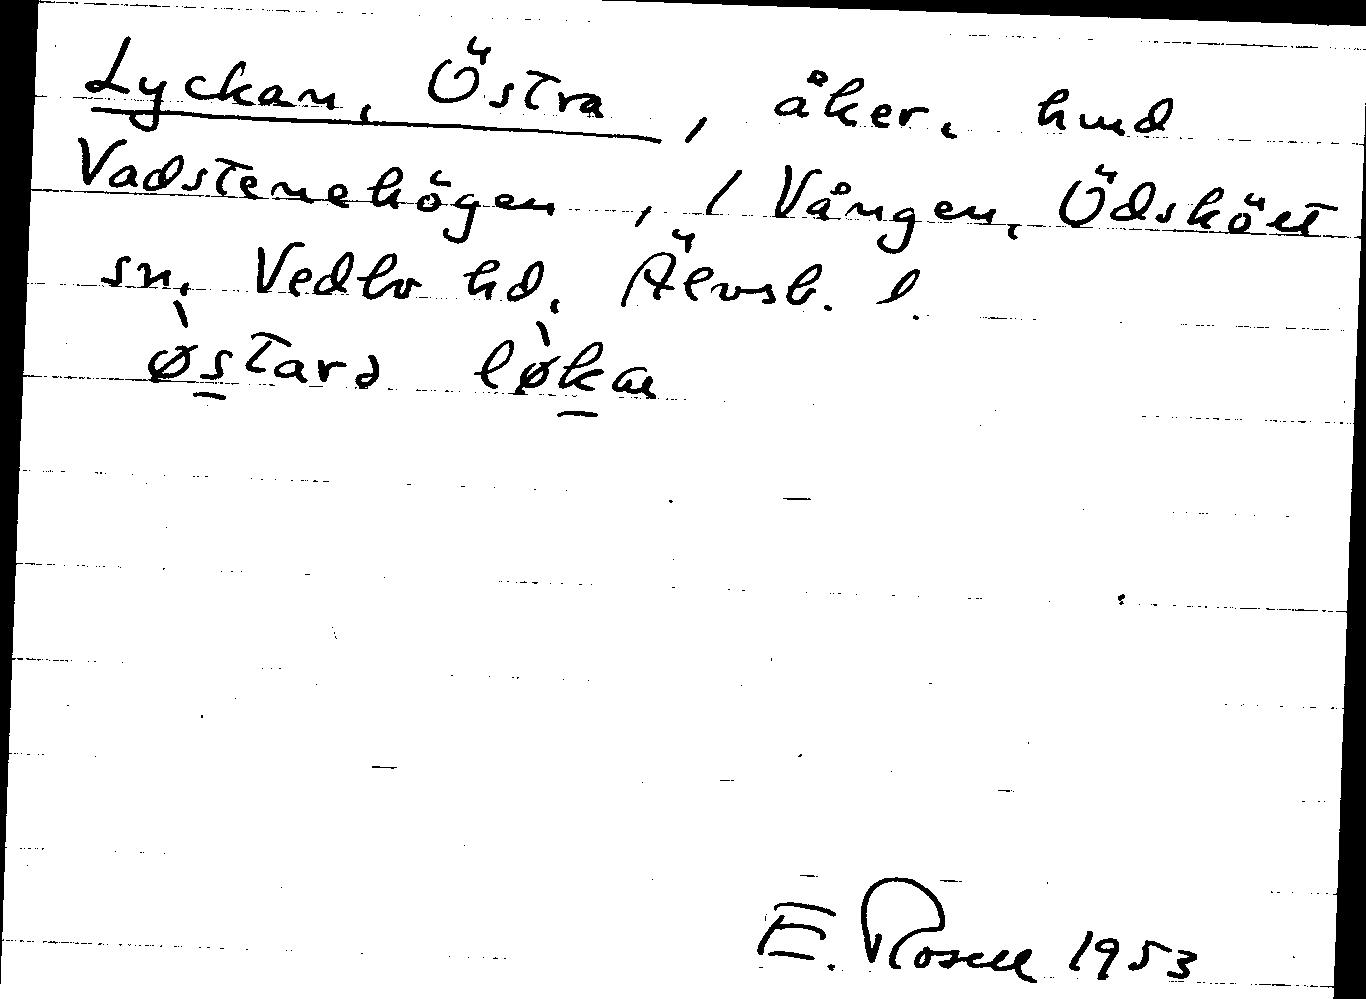 Lyckan, Östra, åker, hmd
Vadstenehögen, 1 Vången, Ödsköt
sn, Vedbo hd, Älvsb. l.
østarə løkaɴ
E. Rosell 1953